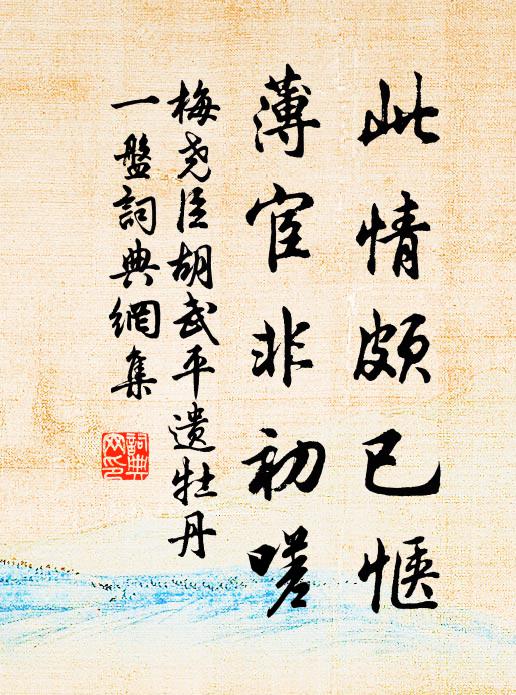 此情頗已愜
薄宦非初嗟
梅堯臣胡武平遺牡丹
一盤詞典網集
詞典
网印